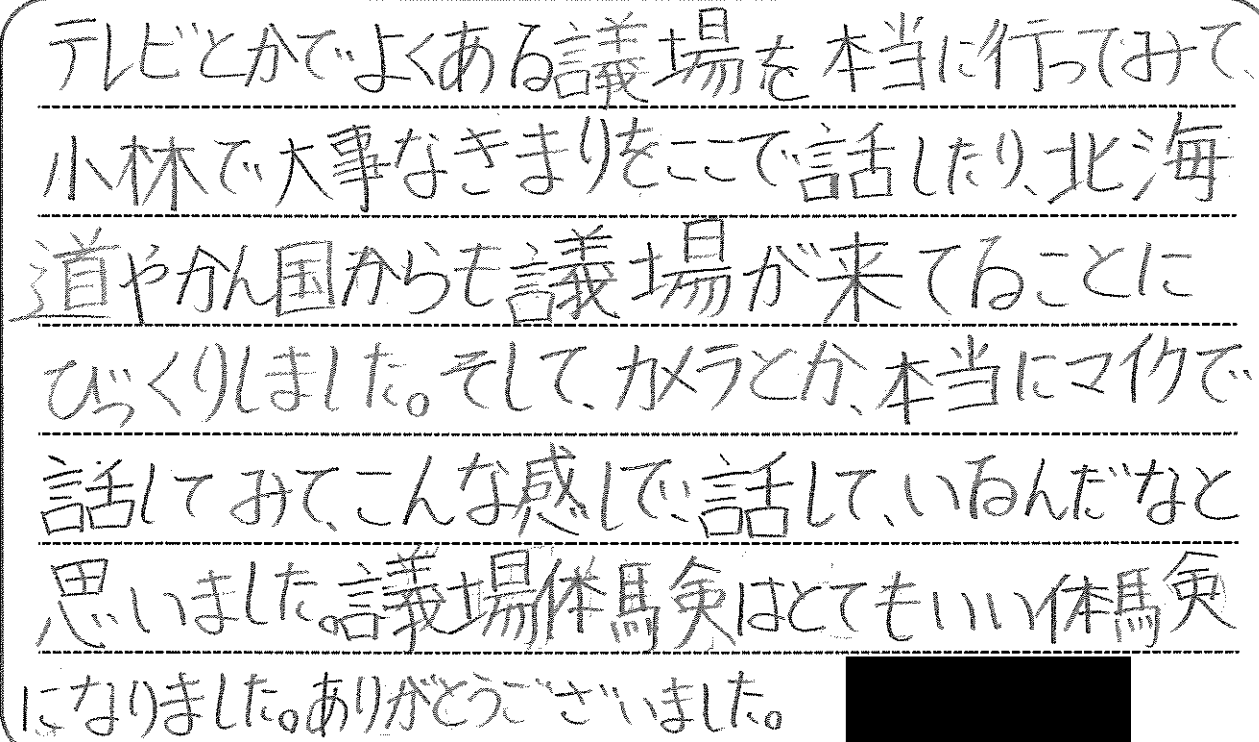 テレビとかでよくある議場を本当に行ってみて、
小林で大事なきまりをここで話したり、北海
道やかん国からも議場が来てることに
びっくりしました。そして、カメラとか、本当にマイクで
話してみて、こんな感じで、話して、いるんだなと
思いました。議場体験はとてもいい体験
になりました。ありがとうございました。